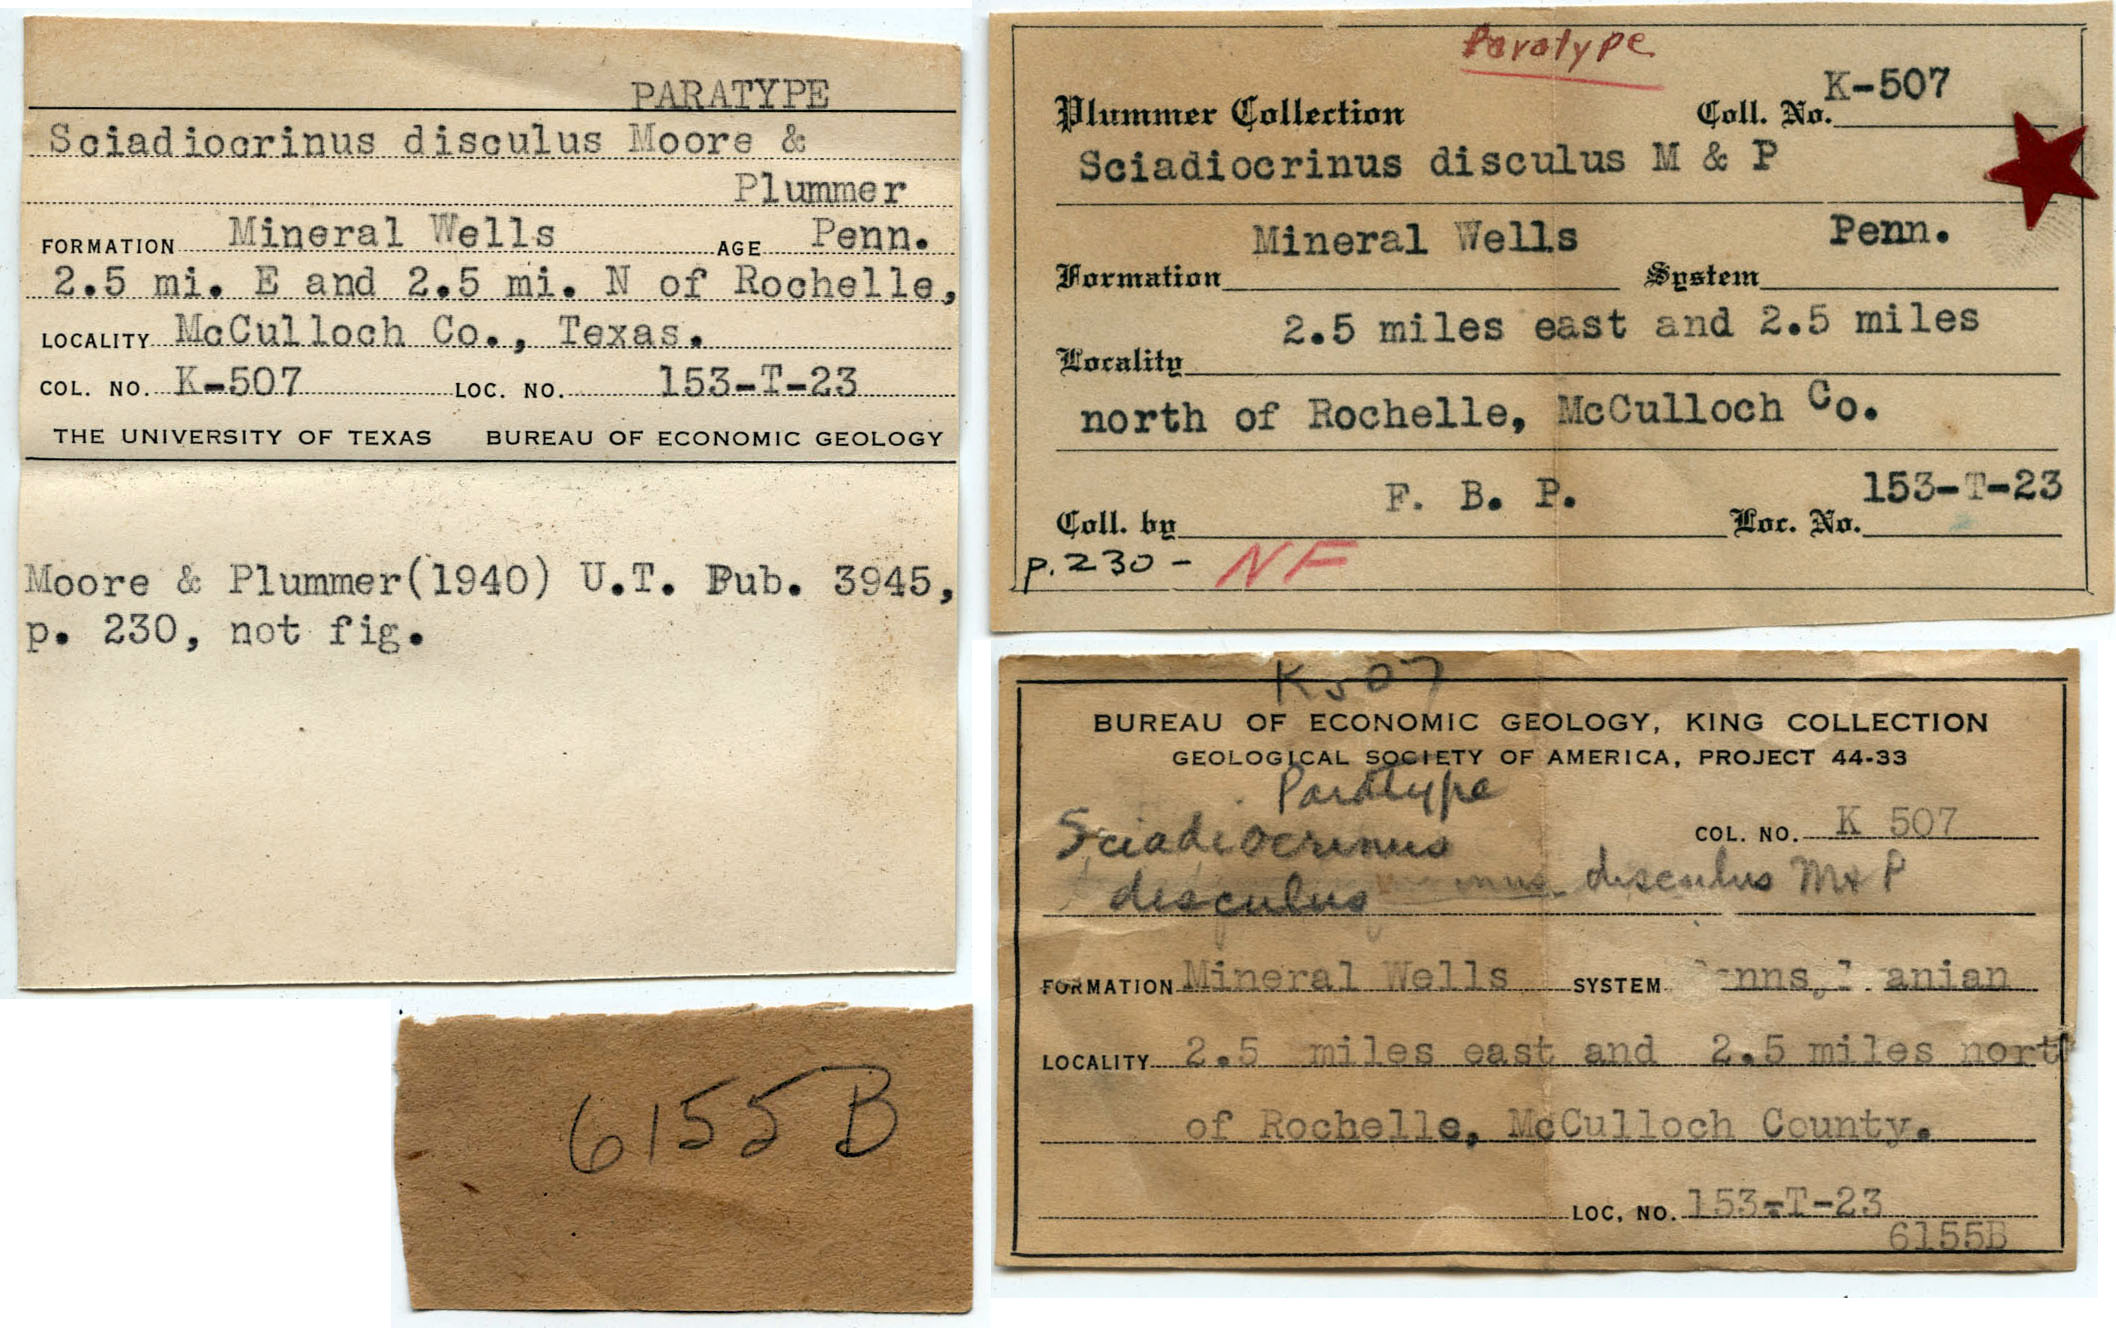 PARATYPE
Sciadiocrinus disculus Moore &
Plummer
FORMATION Mineral Wells AGE Penn.
2.5 mi. E and 2.5 mi. N of Rochelle,
LOCALITY McCulloch Co., Texas.
COL. NO. K-507 LOC. NO. 153-T-23
THE UNIVERSITY OF TEXAS BUREAU OF ECONOMIC GEOLOGY
Moore & Plummer(1940) U.T. Pub. 3945,
p. 230, not fig.
Paratype
Plummer Collection Coll. No. K-507
Sciadiocrinus disculus M & P
Mineral Wells Penn.
Formation System
2.5 miles east and 2.5 miles
Locality
north of Rochelle, McCulloch Co.
F. B. P. 153-T-23
Coll. by Loc. No.
p. 230 - NF
K507
BUREAU OF ECONOMIC GEOLOGY, KING COLLECTION
GEOLOGICAL SOCIETY OF AMERICA, PROJECT 44-33
Paratype
Sciadiocrinus COL. NO. K 507
disculus disculus M & P
FORMATION Mineral Wells SYSTEM
LOCALITY 2.5 miles east and 2.5 miles nort
of Rochelle, McCulloch County.
LOC. NO. 153-T-23
6155B
6155B